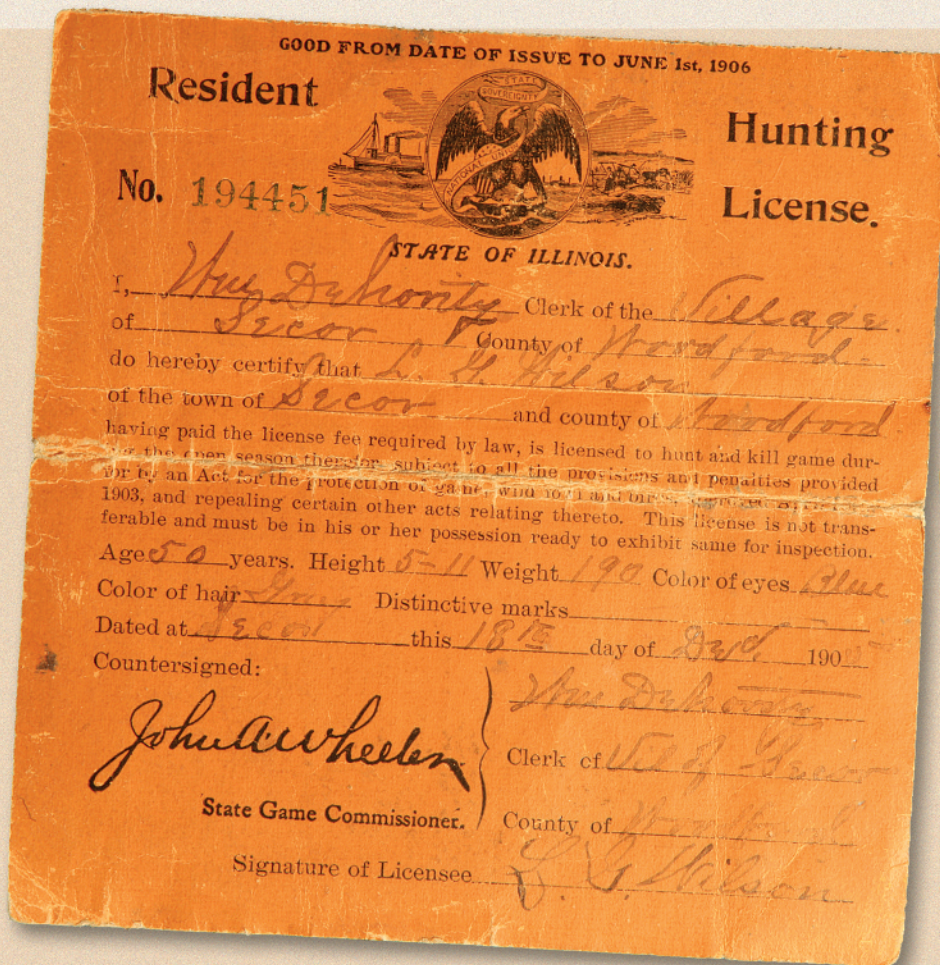 GOOD FROM DATE OF ISSUE TO JUNE 1st, 1906
Resident
Hunting
License.
STATE
SOVEREIGNTY
NATIONAL UNION
No. 194451
STATE OF ILLINOIS.
I, Wm Dehority Clerk of the Village
of Secor County of Woodford
do hereby certify that L. G. Wilson
of the town of Secor and county of Woodford
having paid the license fee required by law, is licensed to hunt and kill game dur-
ing the open season therefor, subject to all the provisions and penalties provided
for by an Act for the protection of game, wild fowl and birds,
1903, and repealing certain other acts relating thereto. This license is not trans-
ferable and must be in his or her possession ready to exhibit same for inspection.
Age 50 years. Height 5-11 Weight 190 Color of eyes Blue
Color of hair Gray Distinctive marks
Dated at Secor this 18th day of 1905
Countersigned:
Wm Dehority
John A Wheeler
Clerk of Vil of Secor
State Game Commissioner.
County of Woodford
Signature of Licensee L. G. Wilson